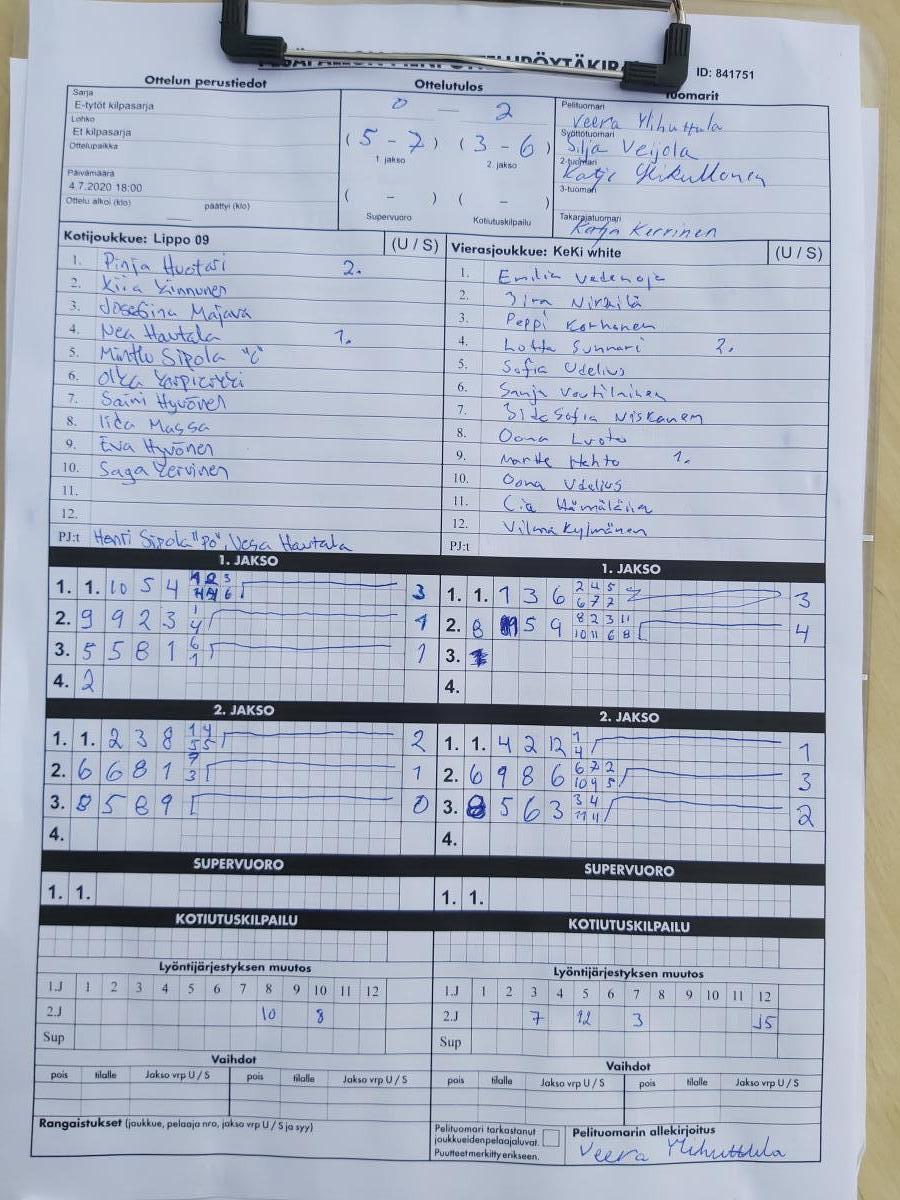 ID: 841751
Ottelun perustiedot
Ottelutulos
Tuomarit
Sarja
E-tytöt kilpasarja
Lohko
Et kilpasarja
Ottelupaikka
Päivämäärä
4.7.2020 18:00
Ottelu alkoi (klo) päättyi (klo)
0 — 2
(5 - 7) (3 - 6)
1. jakso 2. jakso
( - ) ( - )
Supervuoro Kotiutuskilpailu
Pelituomari
Veera Ylihuttula
Syöttötuomari
Silja Veijola
2-tuomari
3-tuomari
Takarajatuomari
Katja Kerrinen
Kotijoukkue: Lippo 09 (U / S)
1. Pinja Huotari 2.
2. Kiia Kinnunen
3. Josefina Majava
4. Nea Hautala 1.
5. Minttu Sipola "C"
6.
7. Saini Hyvönen
8. Iida Massa
9. Eva Hyvönen
10. Saga Kervinen
11.
12.
PJ:t Henri Sipola "PO", Vesa Hautala
Vierasjoukkue: KeKi white (U / S)
1. Emilia Vedenoja
2. Nirkilä
3. Peppi Korhonen
4. Lotta Sunnari 2.
5. Sofia Udelius
6. Sanja Voutilainen
7. Sofia Niskanen
8. Oona Luoto
9. Martta Hehto 1.
10. Oona Udelius
11. Cia Hämäläinen
12. Vilma Kylmänen
PJ:t
1. JAKSO
1. 1. 10 5 4 3
2. 9 9 2 3 1 4 1
3. 5 5 8 1 6 1 1
4. 2
1. JAKSO
1. 1. 1 3 6 2 4 5 6 7 2 3
2. 8 5 9 8 2 3 11 10 11 6 8 4
3.
4.
2. JAKSO
1. 1. 2 3 8 1 4 5 5 2
2. 6 6 8 1 7 3 1
3. 8 5 8 9 0
4.
2. JAKSO
1. 1. 4 2 12 1 4 1
2. 6 9 8 6 6 7 2 10 9 5 3
3. 8 5 6 3 3 4 11 4 2
4.
SUPERVUORO
1. 1.
SUPERVUORO
1. 1.
KOTIUTUSKILPAILU
KOTIUTUSKILPAILU
Lyöntijärjestyksen muutos
1.J 1 2 3 4 5 6 7 8 9 10 11 12
2.J 10 8
Sup
Lyöntijärjestyksen muutos
1.J 1 2 3 4 5 6 7 8 9 10 11 12
2.J 7 12 3 15
Sup
Vaihdot
pois tilalle Jakso vrp U / S pois tilalle Jakso vrp U / S
Vaihdot
pois tilalle Jakso vrp U / S pois tilalle Jakso vrp U / S
Rangaistukset (joukkue, pelaaja nro, jakso vrp U / S ja syy)
Pelituomari tarkastanut
joukkueidenpelaajaluvat.
Puutteet merkitty erikseen.
Pelituomarin allekirjoitus
Veera Ylihuttula